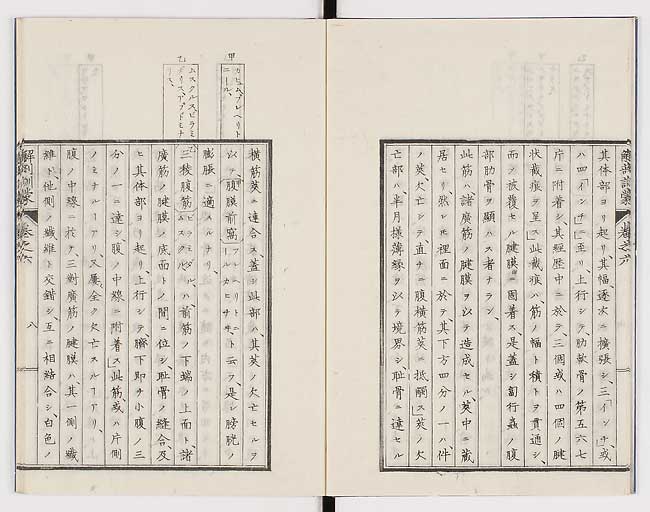 其体部ヨリ起リ、其幅逐次ニ擴張シ、三「インチ」或
ハ四「インチ」ニ至リ上行シテ、肋軟骨ノ第五六七
片ニ附着シ、其経歴中ニ於テ、三個或ハ四個ノ腱
状截痕ヲ呈ス」此截痕ハ、筋ノ幅ト横トヲ貫通シ、
而シテ被覆セル腱膜ニ固着ス、是蓋シ匐行蟲ノ腹
部肋骨ヲ顯ハス者ナラン、
此筋ハ諸廣筋ノ腱膜ヲ以テ造成セル莢中ニ蔵
居セリ、然レ𪜈裡面ニ於テ、其下方四分ノ一ハ、件
ノ莢欠亡シテ、直チニ腹横筋莢ニ抵触ス」莢ノ欠
亡部ハ半月様薄縁ヲ以テ境界シ恥骨ニ達セル
解剖訓蒙 巻之六
八
甲
カヒユム、プレペリトニール、
乙
ムスクルス、ピラミダリス、アブドミナリス、
横筋莢ニ連合ス、蓋シ此部ハ其莢ノ欠亡セルヲ
以テ、腹膜前窩プレペリトニールカヒチートト云ヲ、是レ膀胱ノ
膨脹ニ適スルナリ、
三稜腹筋ピラミダルムスクルハ、前筋ノ下端ノ上面ト、諸
廣筋ノ腱膜ノ底面トノ間ニ位シ、恥骨ノ縫合及
ヒ其体部ヨリ起リ、上行シテ臍下即チ小腹ノ三
分ノ一ニ達シ腹ノ中線ニ附着ス」此筋或ハ片側
ノミナルーアリ、又屡全ク欠亡スルーアリ、
腹ノ中線ニ於テ、三對廣筋ノ腱膜ハ其一側ノ纎
維ト、他側ノ纎維ト交錯シ、互ニ相結合シ、白色ノ